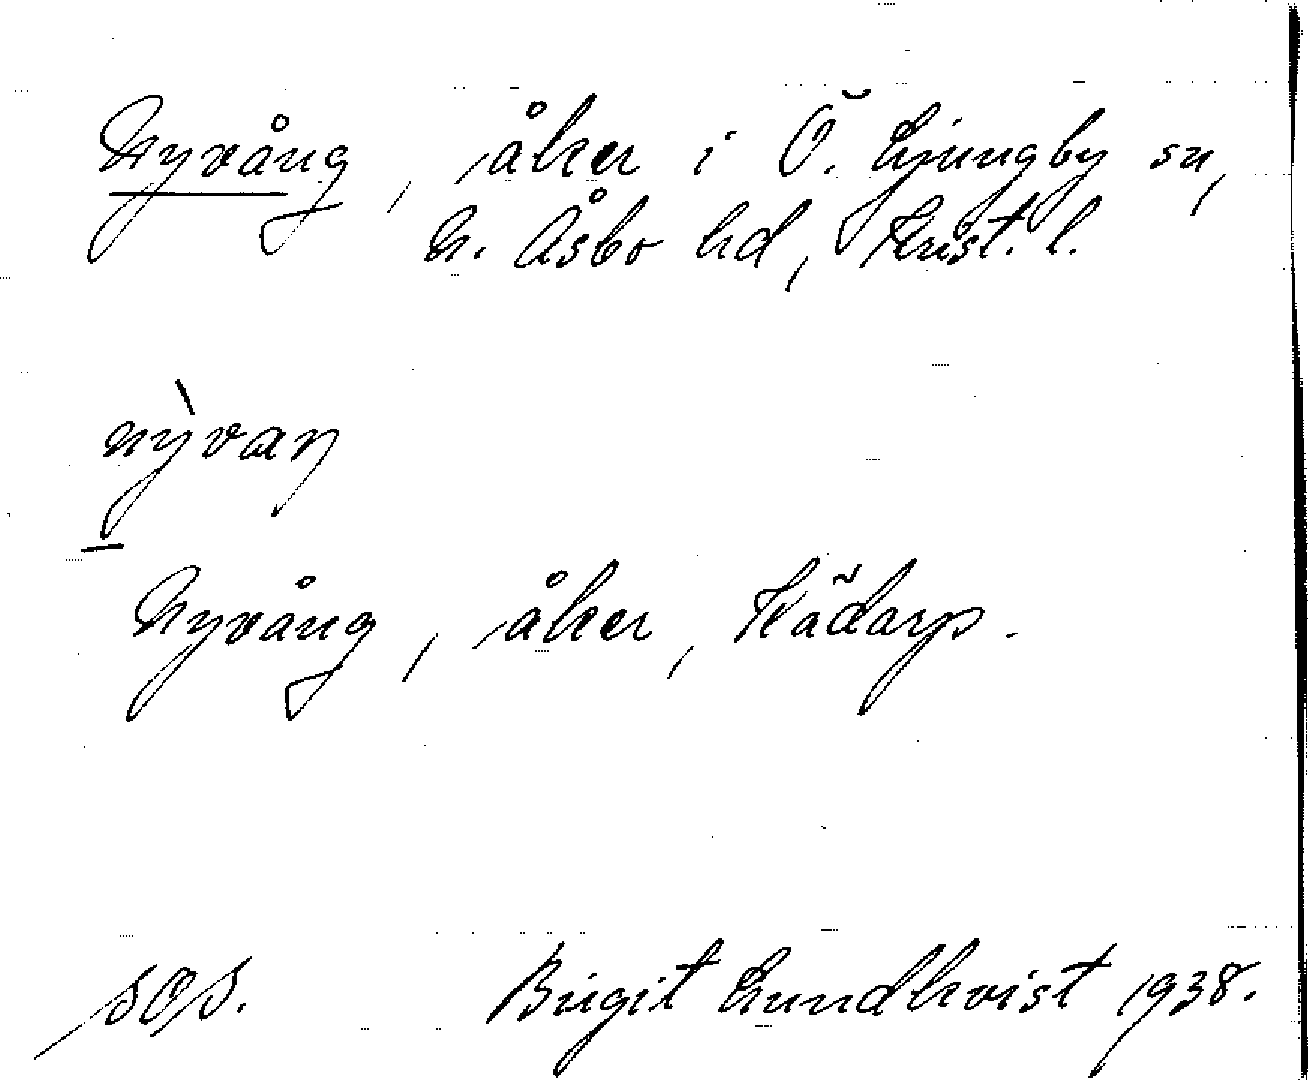 Nyvång, åker i Ö. Ljungby sn,
N. Åsbo hd, Krist. l.
nỳvaŋ
Nyvång, åker, Kädarp.
SOS. Birgit Lundkvist 1938.